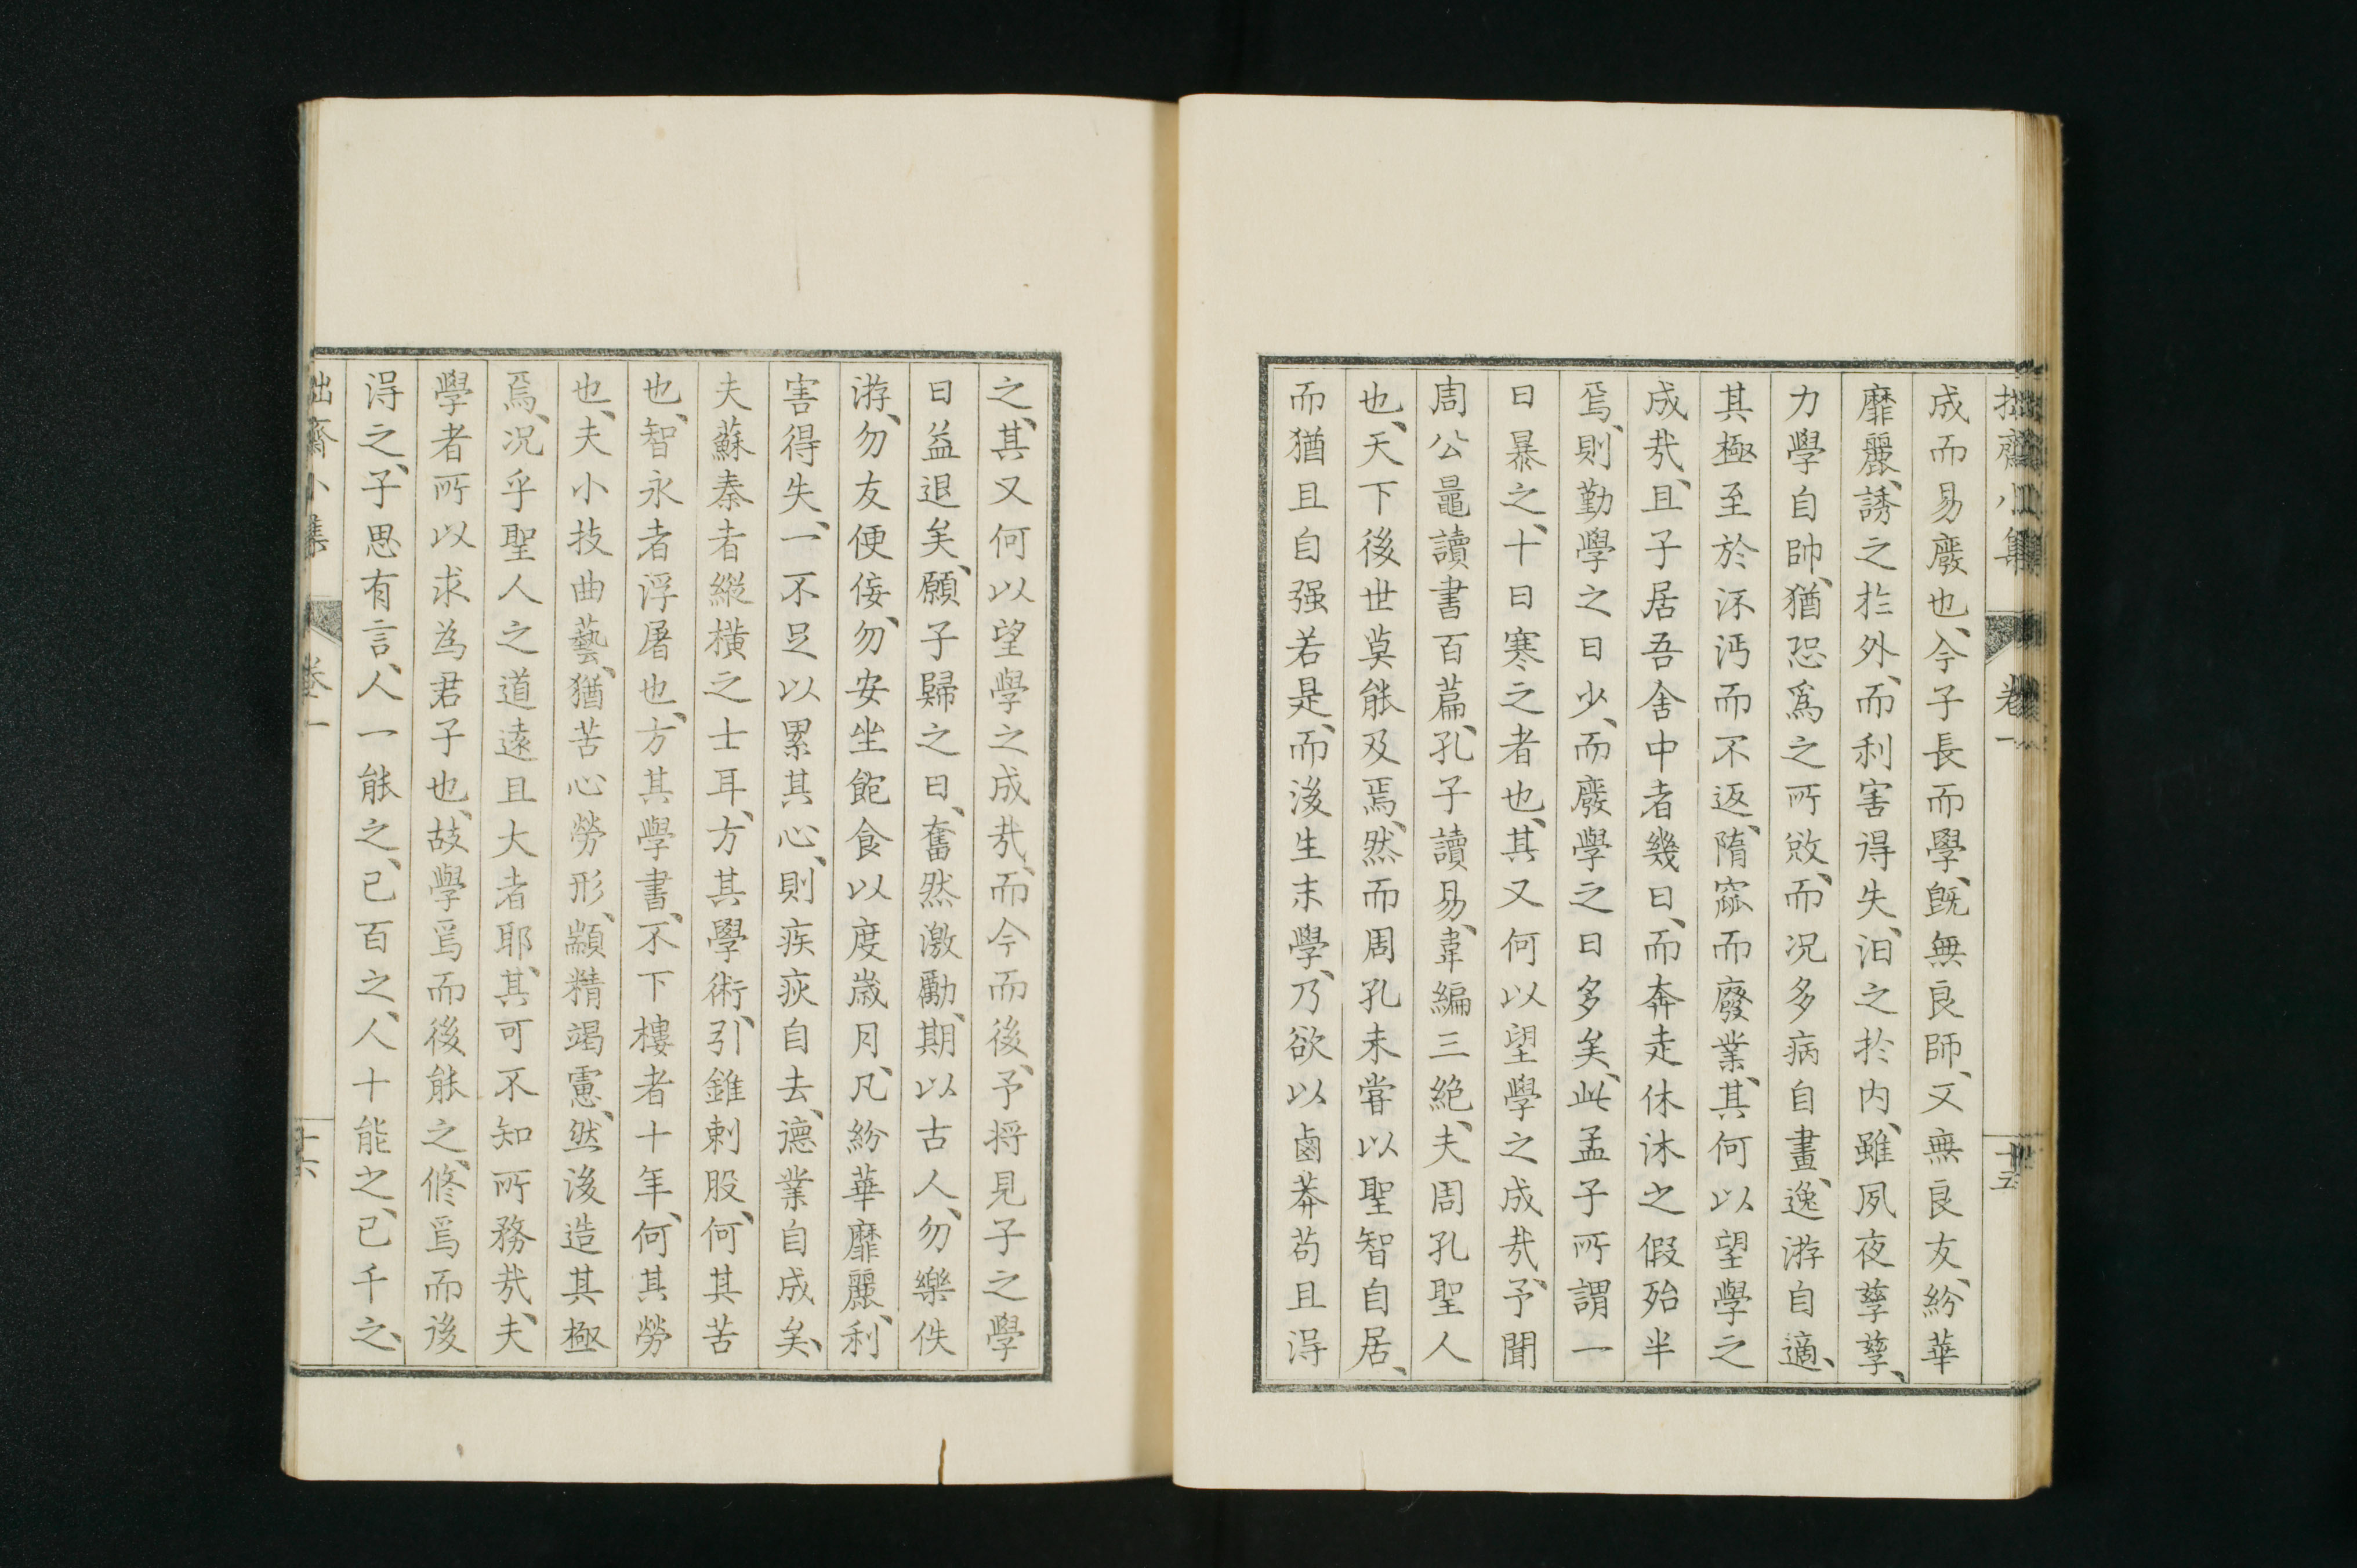 拙齋小集 卷一 十五
成而易廢也、今子長而學、既無良師、又無良友、紛華
靡麗、誘之於外、而利害得失、汩之於内、雖夙夜孳孳、
力學自帥、猶恐爲之所敓、而况多病自畫、逸游自適、
其極至於汚沔而不返、隋窳而廢業、其何以望學之
成㢤、且子居吾舍中者幾日、而奔走休沐之假殆半
焉、則勤學之日少、而廢學之日多矣、此孟子所謂一
日暴之、十日寒之者也、其又何以望學之成㢤、予聞
周公鼂讀書百篇、孔子讀易、韋編三絶、夫周孔聖人
也、天下後世莫能及焉、然而周孔未嘗以聖智自居、
而猶且自强若是、而後生末學、乃欲以鹵莽苟且得
之、其又何以望學之成㢤、而今而後、予将見子之學
日益退矣、願子歸之日、奮然激勵、期以古人、勿樂佚
游、勿友便佞、勿安坐飽食以度歳月、凡紛華靡麗、利
害得失、一不足以累其心、則疾疢自去、德業自成矣、
夫蘇秦者縱橫之士耳、方其學術、引錐刺股、何其苦
也、智永者浮屠也、方其學書、不下樓者十年、何其勞
也、夫小技曲藝、猶苦心勞形、顓精竭慮、然後造其極
焉、况乎聖人之道遠且大者耶、其可不知所務㢤、夫
學者所以求為君子也、故學焉而後能之、修焉而後
得之、子思有言、人一能之、己百之、人十能之、己千之、
拙齋小集 卷一 十六